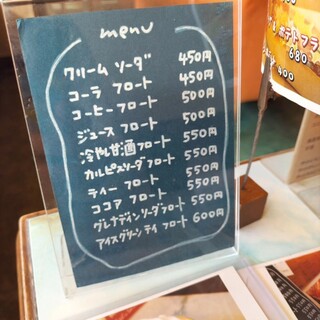 menu
クリームソーダ 450円
コーラ フロート 450円
コーヒーフロート 500円
ジュース フロート 500円
冷やし甘酒フロート 550円
カルピスソーダフロート 550円
ティー フロート 550円
ココア フロート 550円
グレナデンソーダフロート 550円
アイスグリーンティ フロート 600円
ポテトフラ
680